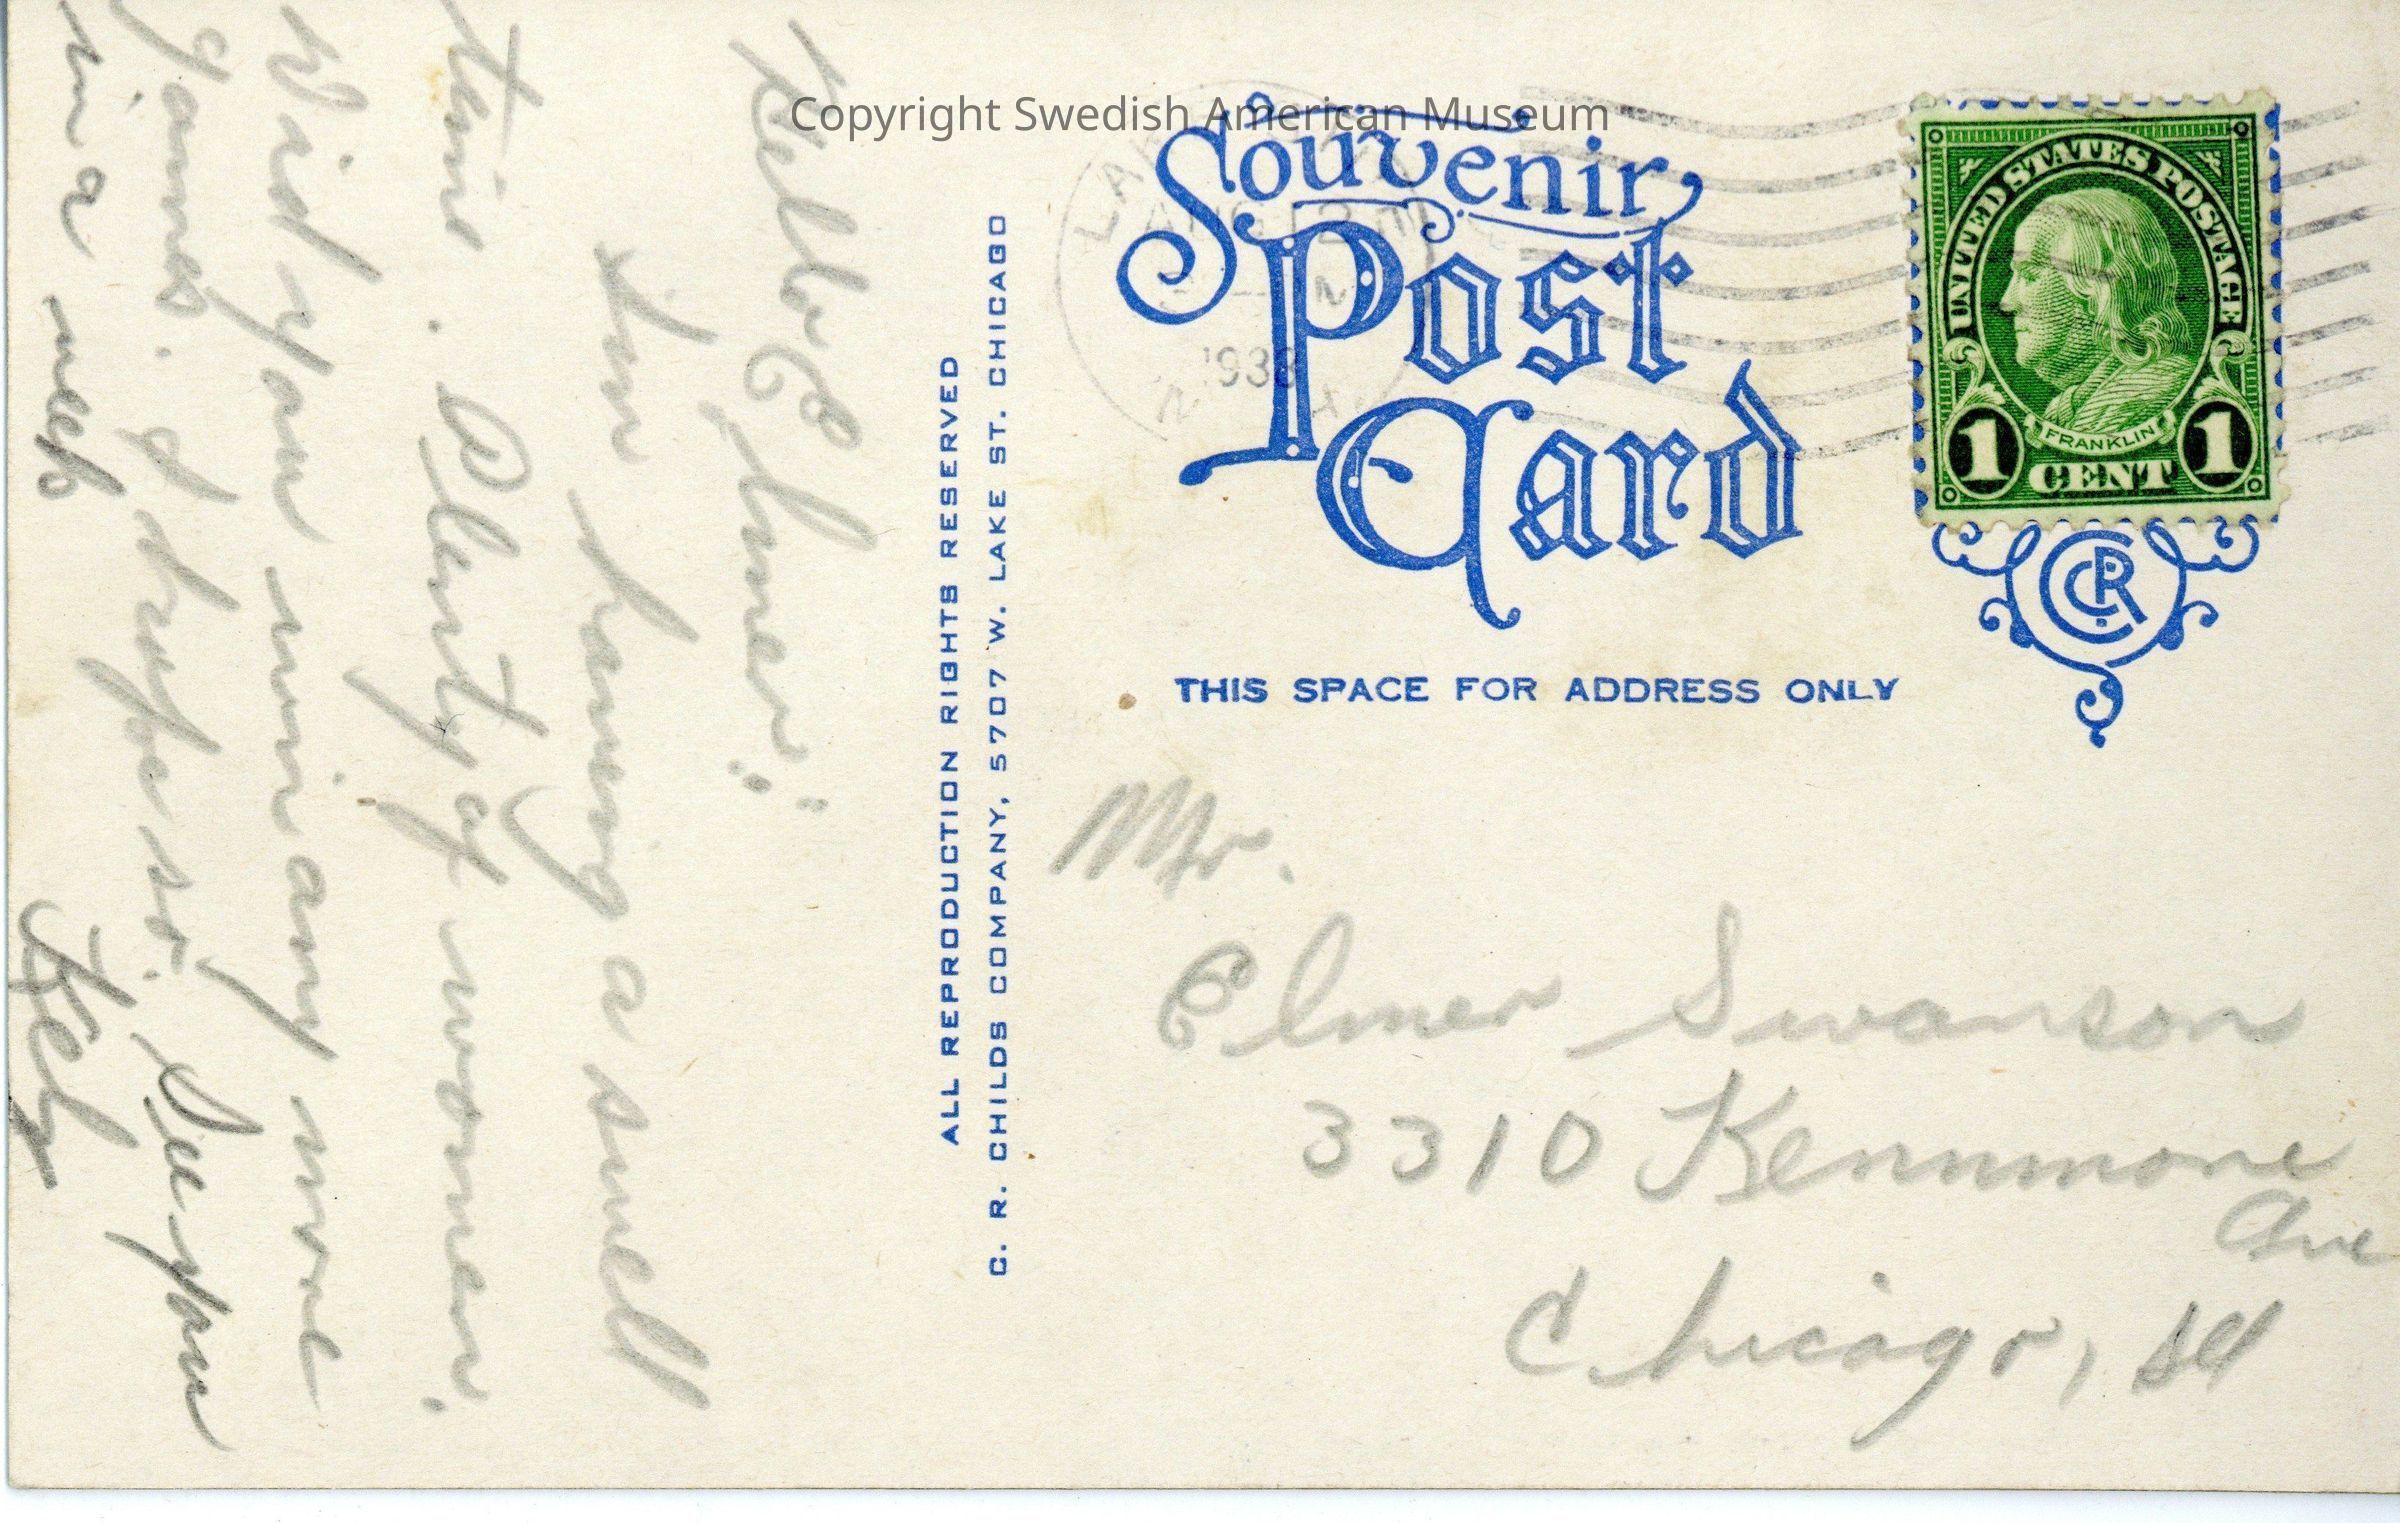 Copyright Swedish American Museum
Souvenir
Post
Card
UNITED STATES POSTAGE
FRANKLIN
1 CENT 1
CRC
AUG 12
1933
THIS SPACE FOR ADDRESS ONLY
Mr.
Elmer Swanson
3310 Kennmore
Ave
Chicago, Ill
ALL REPRODUCTION RIGHTS RESERVED
C. R. CHILDS COMPANY, 5707 W. LAKE ST. CHICAGO
Hello Elmer;
Im having a swell
time. Plenty of women.
Did you win any more
games. I hope so. See you
in a week